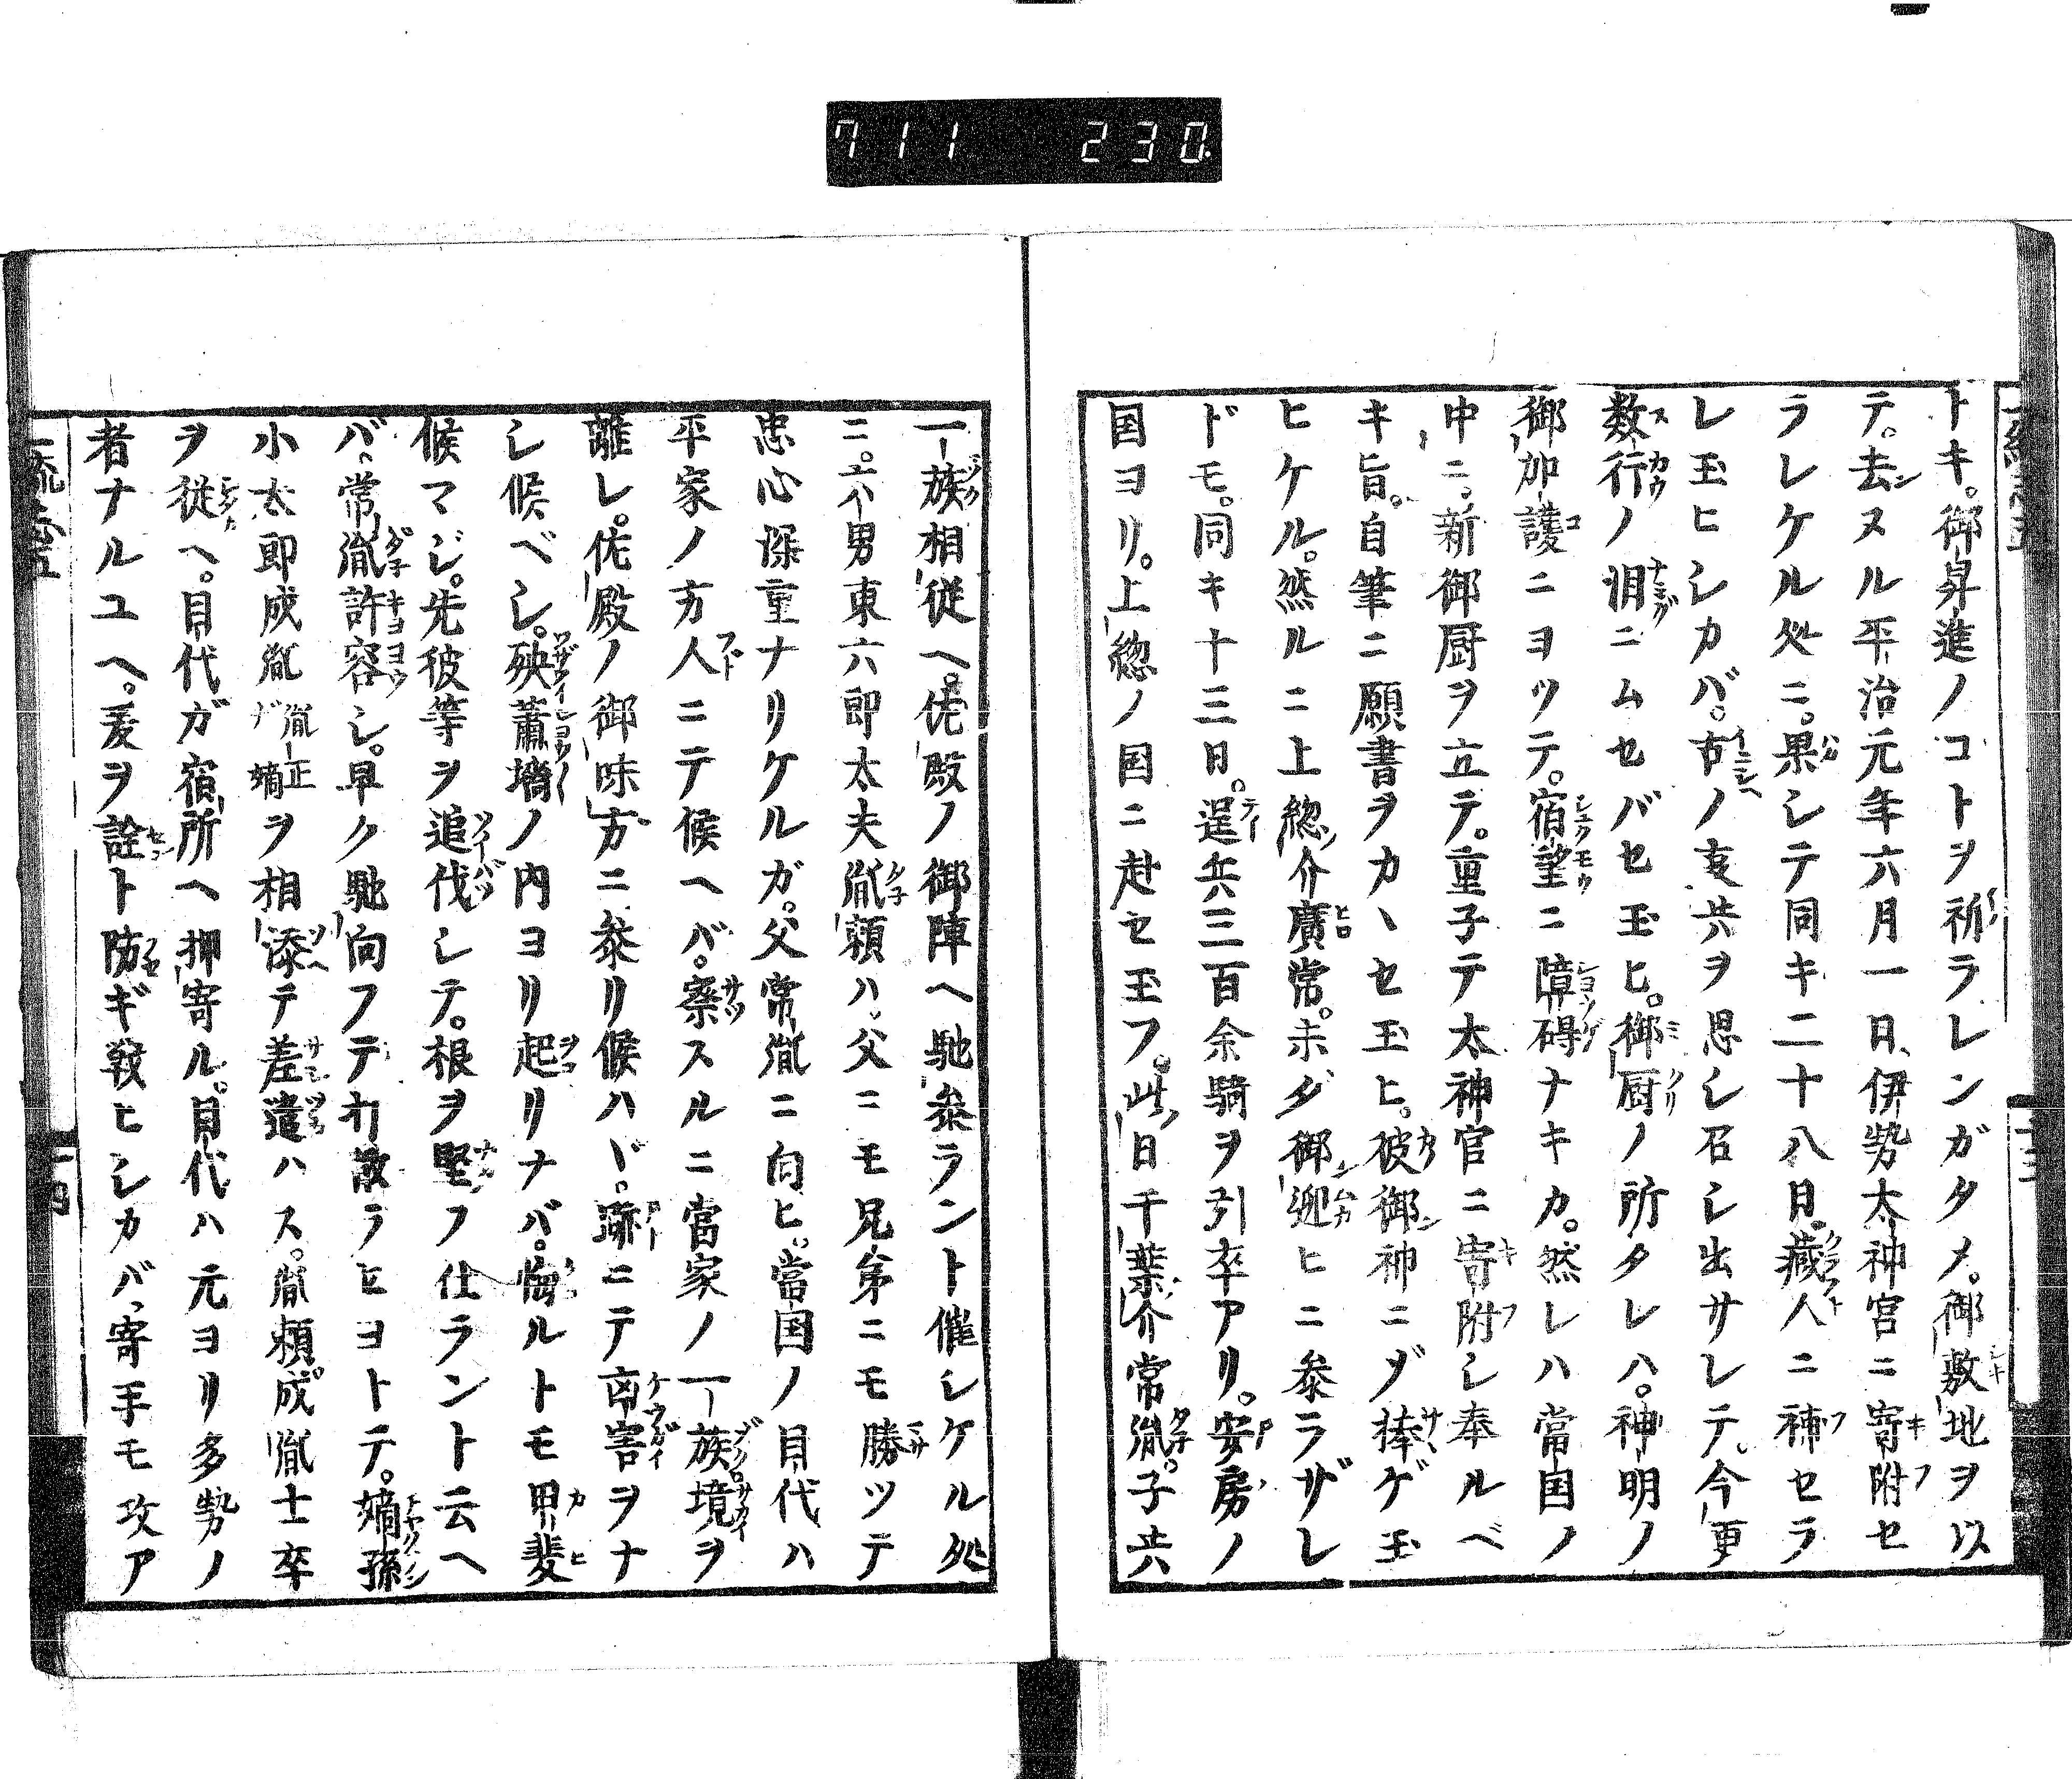 711 230.
トキ。御昇進ノコトヲ祈ラレンガタメ。御敷地ヲ以
テ。去ヌル平治元年六月一日、伊勢太神宮ニ寄附セ
ラレケル処ニ。果シテ同キ二十八日。蔵人ニ補セラ
レ玉ヒシカバ。古ノ㕝共ヲ思シ召シ出サレテ。今更
数行ノ泪ニムセバセ玉ヒ。御厨ノ所タレハ。神明ノ
御加護ニヨツテ。宿望ニ障碍ナキカ。然レハ當国ノ
中ニ。新御厨ヲ立テ。重子テ太神宮ニ寄附シ奉ルベ
キ旨。自筆ニ願書ヲカヽセ玉ヒ。彼御神ニゾ捧ゲ玉
ヒケル。然ルニ上総介廣常。未ダ御迎ヒニ参ラザレ
ドモ。同キ十三日。逞兵三百余騎ヲ引卒アリ。安房ノ
国ヨリ。上総ノ国ニ赴セ玉フ。此日千葉介常胤。子共
一族相従ヘ。佐殿ノ御陣ヘ馳参ラント催シケル処
ニ。六男東六郎太夫胤頼ハ。父ニモ兄弟ニモ勝ツテ
忠心深重ナリケルガ。父常胤ニ向ヒ。當国ノ目代ハ
平家ノ方人ニテ候ヘバ。察スルニ當家ノ一族。境ヲ
離レ。佐殿ノ御味方ニ参リ候ハヾ。跡ニテ凶害ヲナ
シ候ベシ。殃蕭墻ノ内ヨリ起リナバ。悔ルトモ甲斐
候マジ。先彼等ヲ追伐シテ。根ヲ堅フ仕ラント云ヘ
バ、常胤許容シ。早ク馳向フテ打散ラヒヨトテ。嫡孫
小太郎成胤胤正ガ嫡ヲ相添テ差遣ハス。胤頼成胤士卒
ヲ従ヘ。目代ガ宿所ヘ押寄ル。目代ハ元ヨリ多勢ノ
者ナルユヘ。爰ヲ詮ト防ギ戦ヒシカバ、寄手モ攻ア